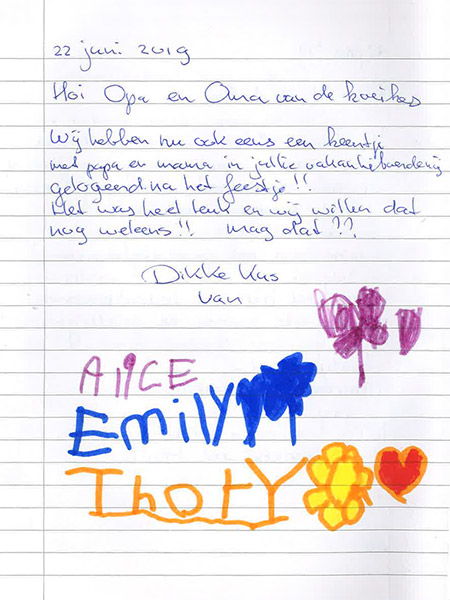 22 juni 2019
Hoi Opa en Oma van de koeikes
Wij hebben nu ook eens een keertje
met papa en mama in jullie vakantieboerderij
gelogeerd na het feestje!!
Het was heel leuk en wij willen dat
nog weleens!! mag dat??
Dikke Kus
van
AlICE
EmilY
ThorY